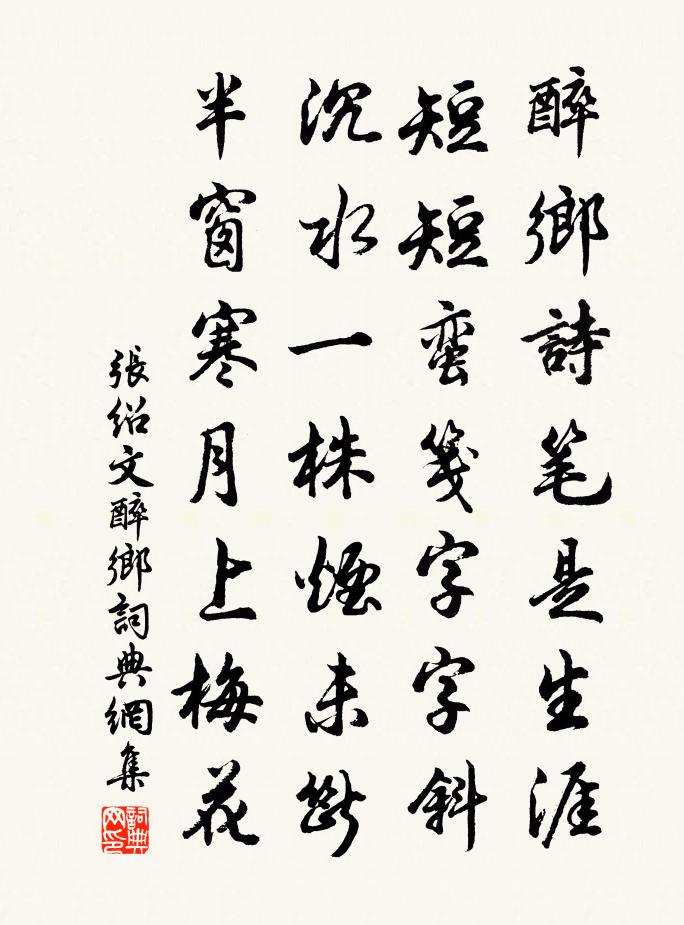 醉鄉詩笔是生涯
短短蛮箋字字斜
沉水一株煙未斷
半窗寒月上梅花
張紹文醉鄉詞典網集
詞典网印